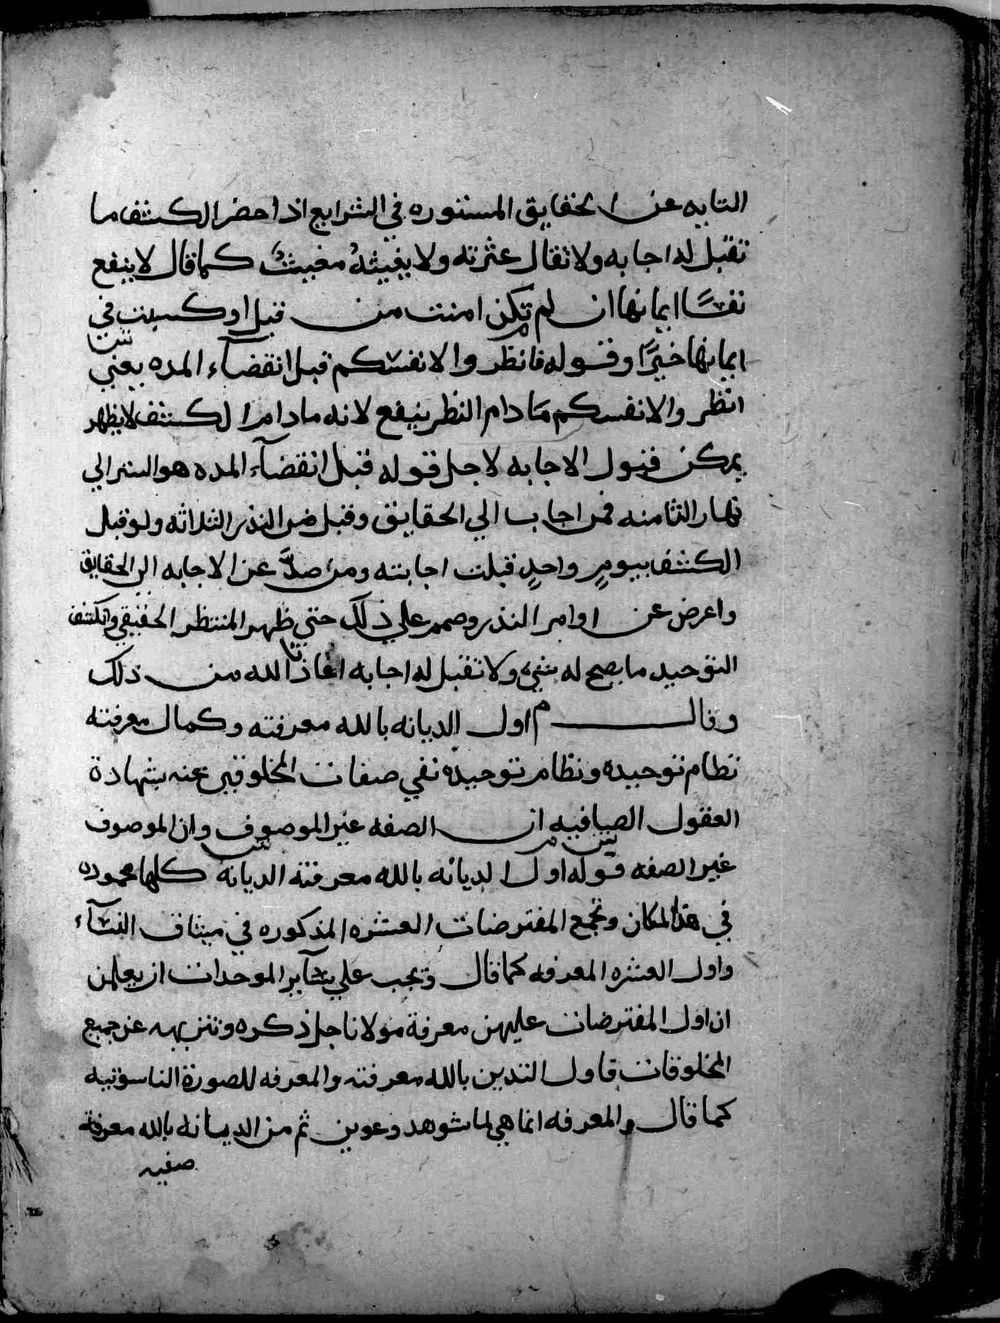 التايه عن الحقايق المستوره في الشرايع اذا حضر الكشف ما
تقبل له اجابه ولا تقال عثرته ولا يغيثهُ مغيثُ كما قال لا ينفع
نفسًا ايمانها ان لم تكن امنت من قبل او كسبت في
ايمانها خيرًا وقوله فانظروا لانفسكم قبل انقضآء المده يعني
انظروا لانفسكم ما دام النظر ينفع لانه مادام الكشف لا يظهر
يمكن قبول الاجابه لاجل قوله قبل انقضآء المده هو الستر الي
نهار الثامنه فمن اجاب الي الحقايق وقبل من النذر الثلاثه ولو قبل
الكشف بيومٍ واحدٍ قبلت اجابته ومن صدَّ عن الاجابه الي الحقايق
واعرض عن اوامر النذر وصمم علي ذلك حتي ظهر المنتظر الحقيقي وانكشف
التوحيد ما يصح له شيء ولا تقبل له اجابه اعاذنا الله من ذلك
وقال م اول الديانه بالله معرفته وكمال معرفته
نظام توحيده ونظام توحيده نفي صفات المخلوقين عنه بشهادة
العقول الصافيه ان الصفه غير الموصوف وان الموصوف
غير الصفه قوله اول الديانه بالله معرفته الديانه كلها محموده
في هذا المكان وتجمع المفترضات العشره المذكوره في ميثاق النسآء
واول العشره المعرفه كما قال ويجب علي سآير الموحدات ان يعلمن
ان اول المفترضات عليهن معرفة مولانا جل ذكره وتنزيهه عن جميع
المخلوقات فاول التدين بالله معرفته والمعرفه للصورة الناسوتيه
كما قال والمعرفه انما هي لما شوهد وعوين ثم من الديانه بالله معرفة
صفيه